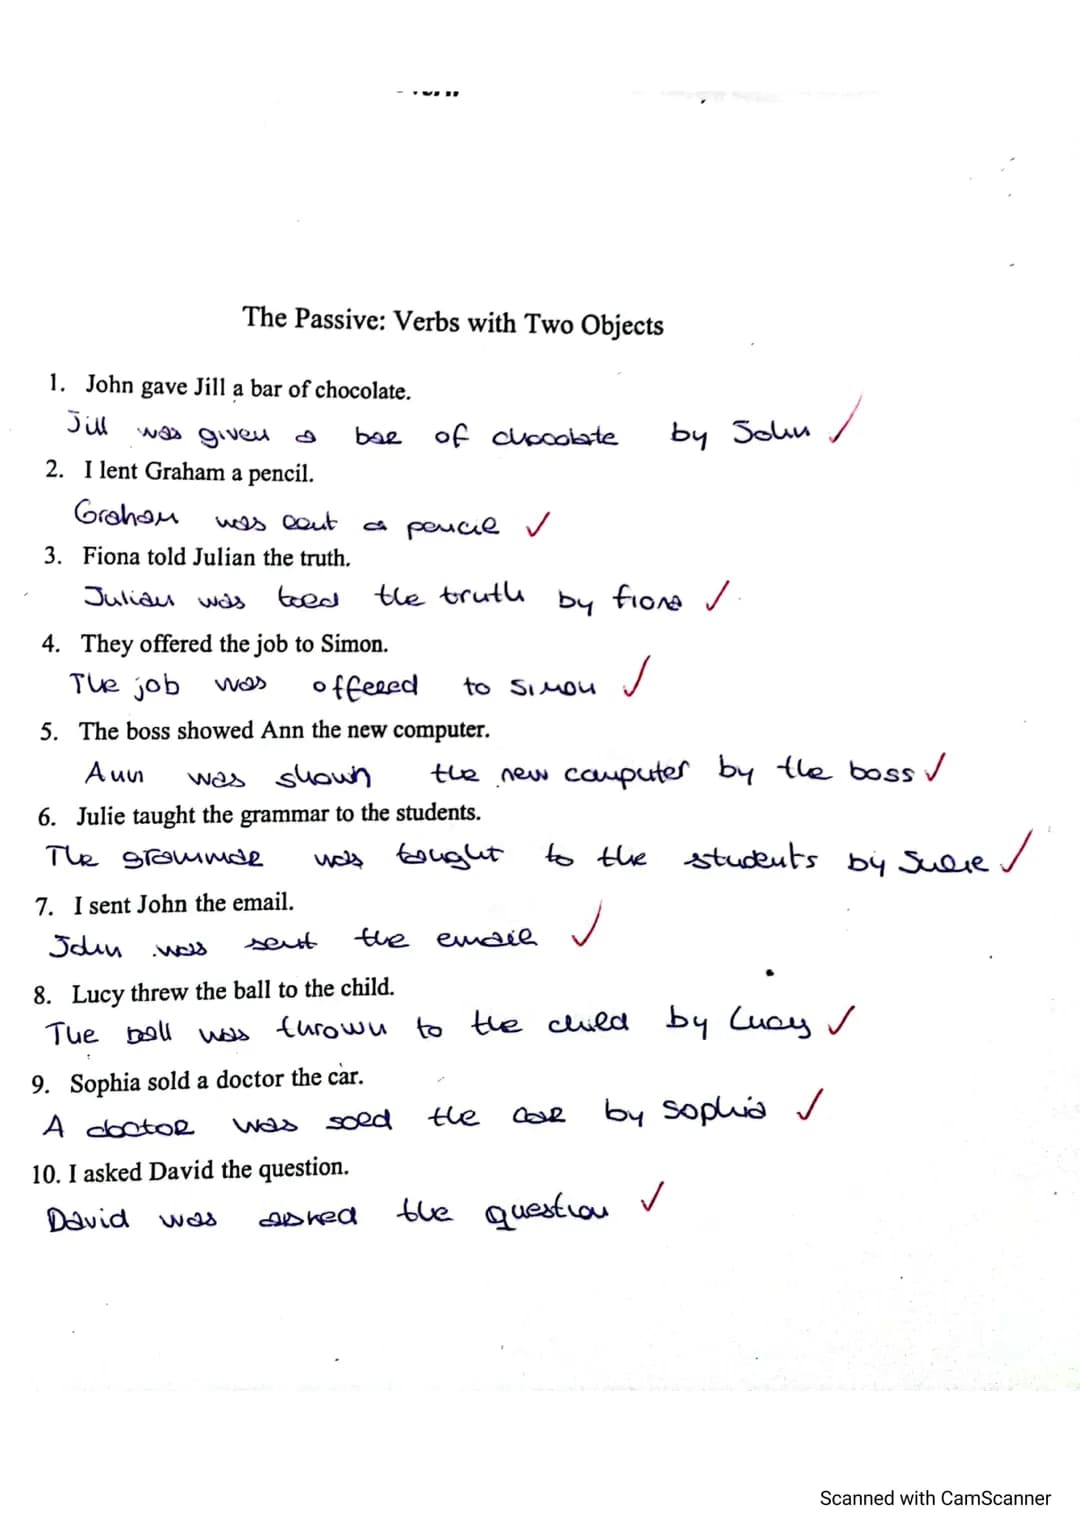 The Passive: Verbs with Two Objects
1. John gave Jill a bar of chocolate.
Jill was given a bar of chocolate by John ✓
2. I lent Graham a pencil.
Graham was lent a pencil ✓
3. Fiona told Julian the truth.
Julian was told the truth by fiona ✓
4. They offered the job to Simon.
The job was offered to Simon ✓
5. The boss showed Ann the new computer.
Ann was shown the new computer by the boss ✓
6. Julie taught the grammar to the students.
The grammar was taught to the students by Julie ✓
7. I sent John the email.
John was sent the email ✓
8. Lucy threw the ball to the child.
The ball was thrown to the child by Lucy ✓
9. Sophia sold a doctor the car.
A doctor was sold the car by sophia ✓
10. I asked David the question.
David was asked the question ✓
Scanned with CamScanner